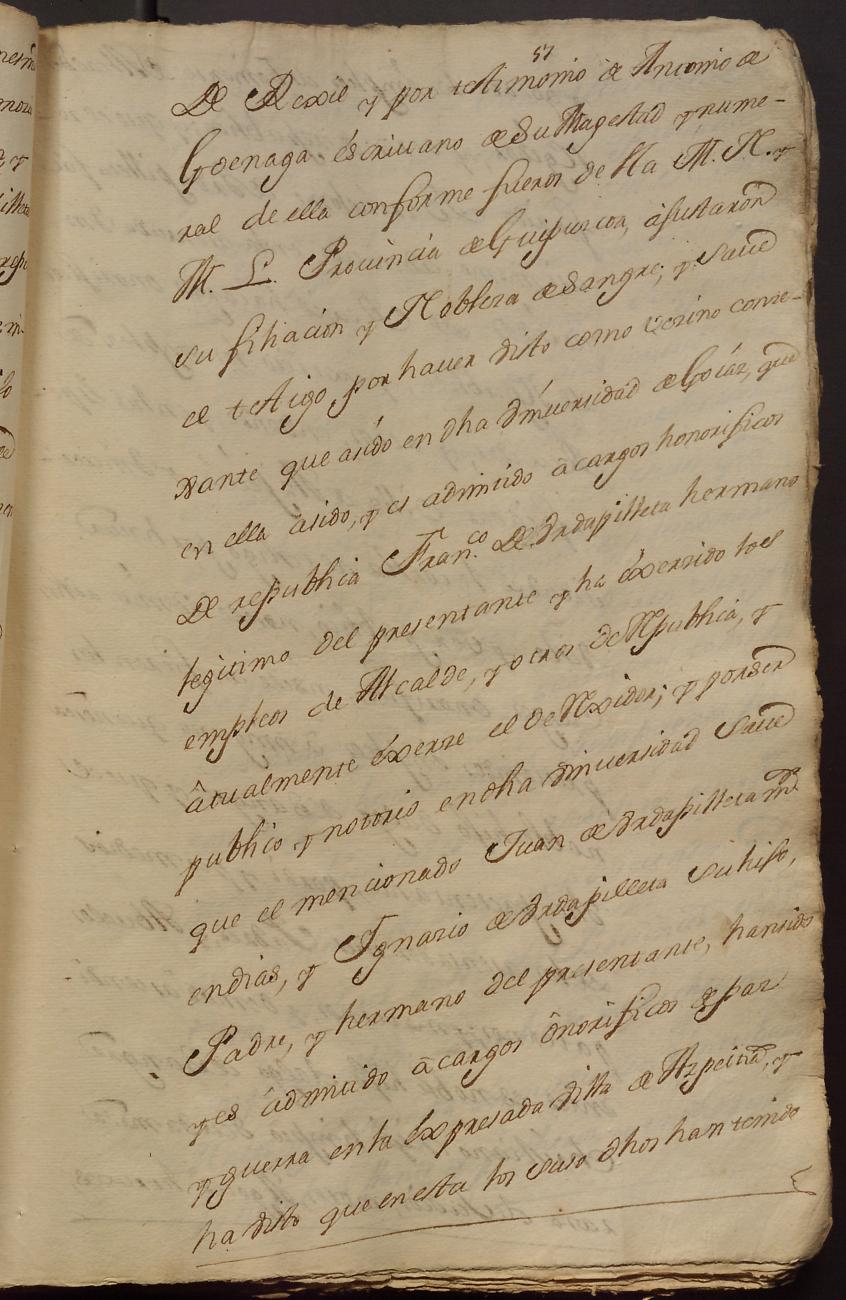 57
De Rexil y por testimonio de Antonio de
Goenaga escriuano de Su Magestad y nume-
ral de ella conforme fueros de sta M. N. y
M. L. Prouincia de Guipuzcoa, ajustaron
su filiación y Nobleza de Sangre; y Saue
el testigo por hauer visto como vecino come-
rante que asido en dha Vniuersidad de Goiáz, que
en ella asido, y es admitido a cargos honorificos
De republica Fran.co De Vrdapilleta hermano
legitimo del presentante y ha éxersido los
empleos de Alcalde, y otros de Republica, y
âtualmente éxerse el de Rexidor; y por ser
publico y notorio en dha Vniuersidad Saue
que el mencionado Juan de Vrdapilleta mr
en dias, y Ygnazio de Vrdapilleta su hijo,
Padre, y hermano del presentante, han sido
y es ádmitido a cargos ônorificos de paz
y guerra en la éxpresada villa de Azpeitia, y
ha visto que en esta los suso dhos han tenido